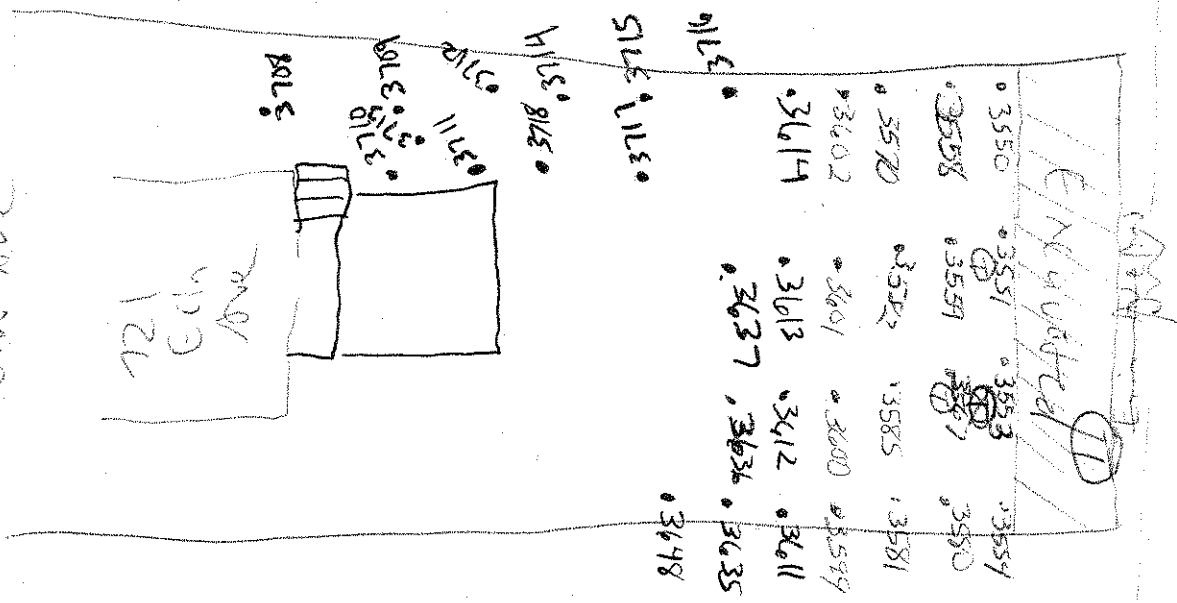 Excavated T1
3550 3551 3553 3554
3558 3559 3567 3580
3570 3582 3585 3581
3602 3601 3600 3599
3614 3613 3612 3611
3716 3637 3636 3635
3715 3717 3648
3714 3718
3712 3711
3709 3713 3710
3708
721
Ave